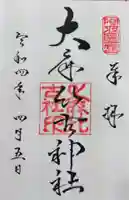 奉拝
大麻比古神社
令和四年 四月五日